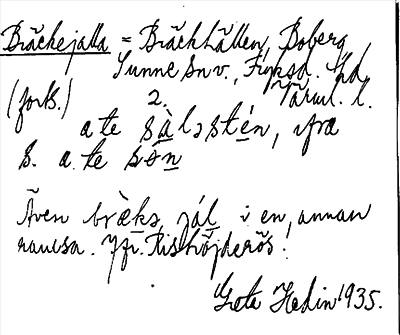 Bräckejalla = Bräckhällen, Boberg
Sunne Sn v., Fryksd. Hd,
(forts.) 2. Värml. l.
a te sàlstén, ifrå
s. a te són
Även bræks jál i en annan
ramsa. Jfr. Rishöjderös.
Gota Hedin 1935.